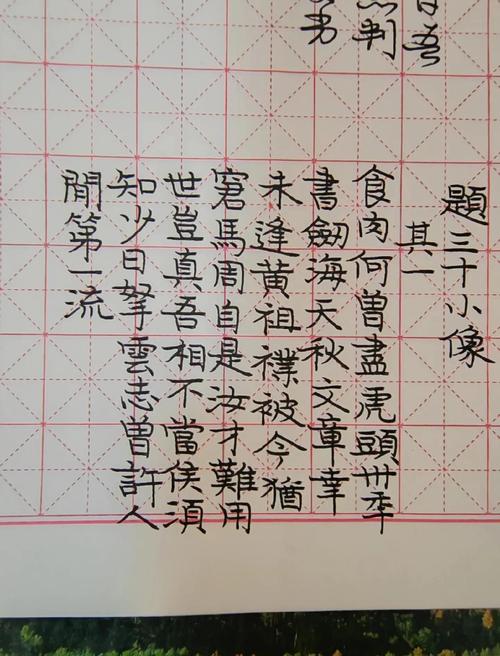 吾
判
題三十小像
其一
食肉何曾盡虎頭卅秊
書劒海天秋文章幸
未逢黃祖襆被今猶
窘馬周自是汝才難用
世豈真吾相不當侯須
知少日拏雲志曾許人
間第一流